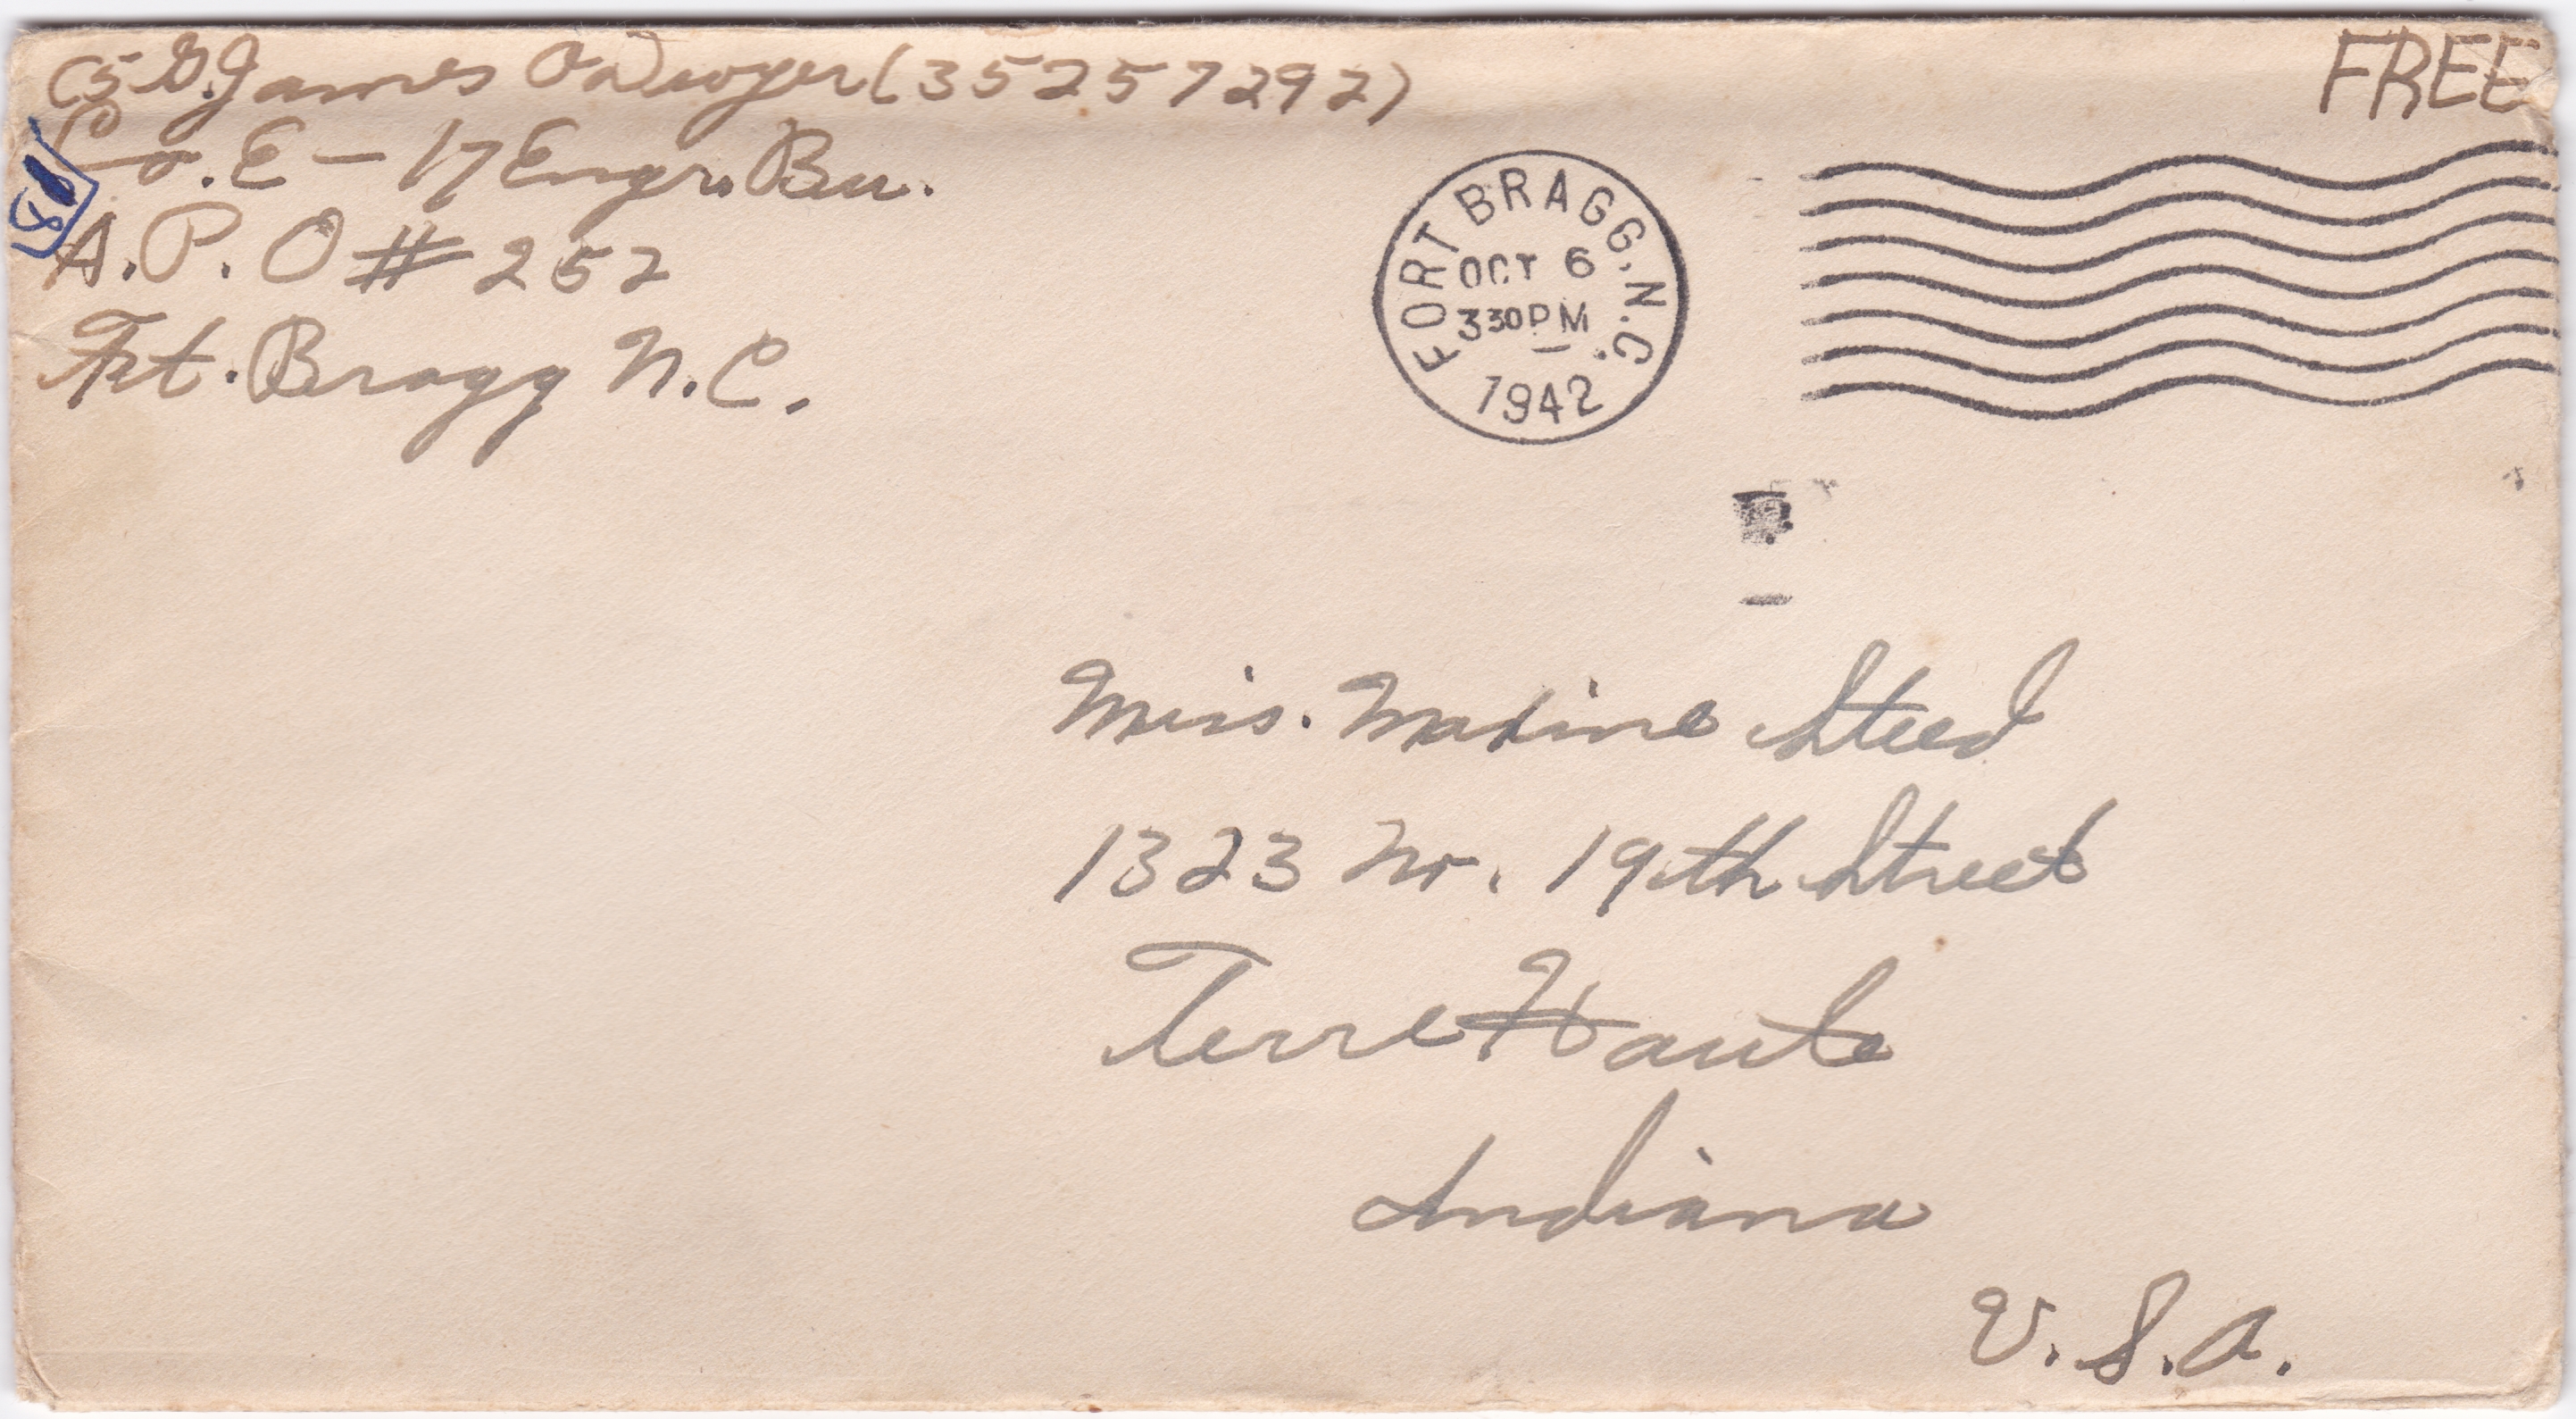 James O'Dwyer (35257292)
Co. E - 17 Engr. Bn.
A.P.O # 252
Frt. Bragg N.C.
FREE
FORT BRAGG, N.C.
OCT 6
330PM
1942
Miss. Maxine Steed
1323 No. 19th Street
Terre Haute
Indiana
U.S.A.